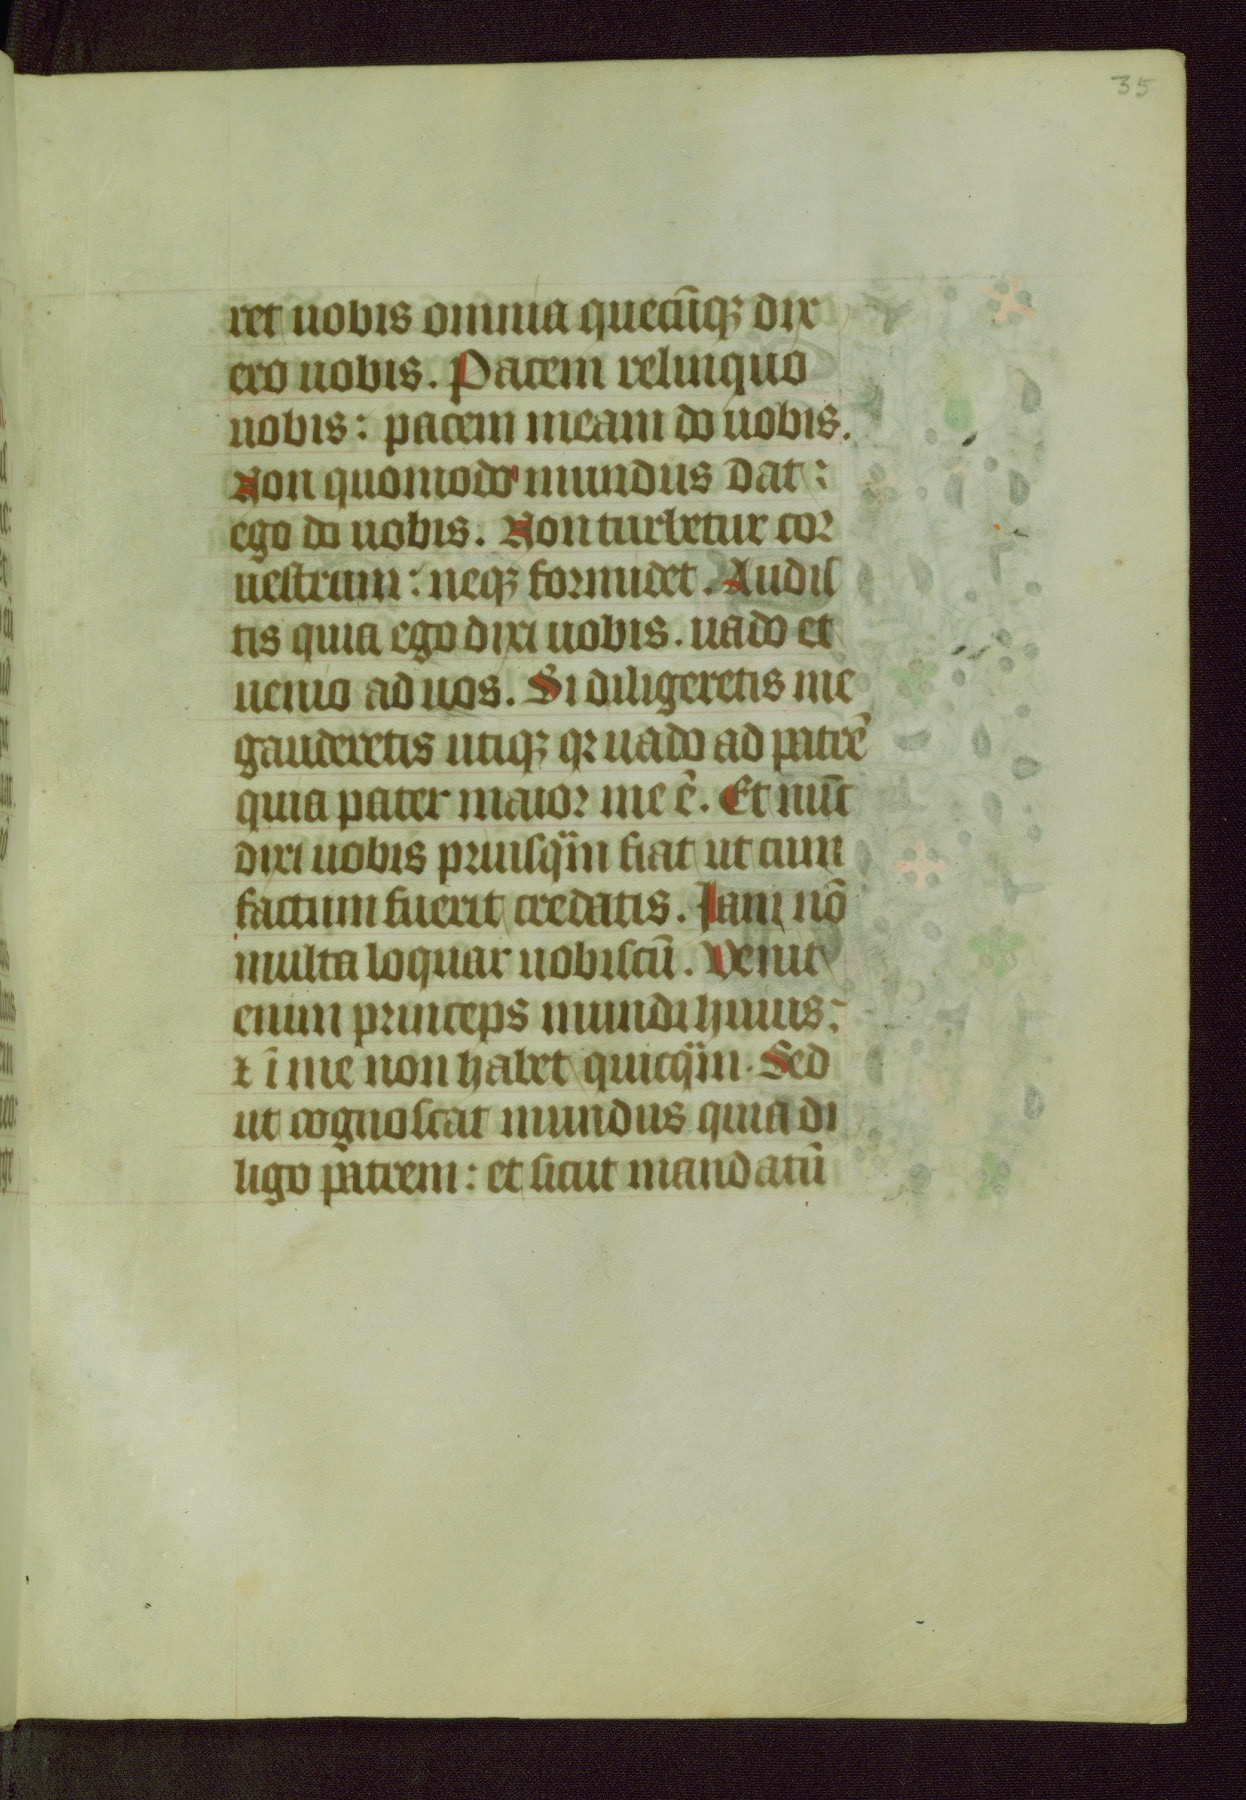 35
ret uobis omnia quecūqꝫ dix
ero uobis. Pacem relinquo
uobis: pacem meam do uobis.
Non quomodo mundus dat:
ego do uobis. Non turbetur cor
uestrum: neqꝫ formidet. Audiſ
tis quia ego dixi uobis. uado et
uenio ad uos. Si diligeretis me
gauderetis utiqꝫ qꝛ uado ad patrē
quia pater maior me ē. Et nūc
dixi uobis priuſq̈m fiat ut cum
factum fuerit credatis. Iam nō
multa loquar uobiſcū. Venit
enim princeps mundi huius:
⁊ ī me non habet quicq̈m. Sed
ut cognoſcat mundus quia di
ligo patrem: et ſicut mandatū